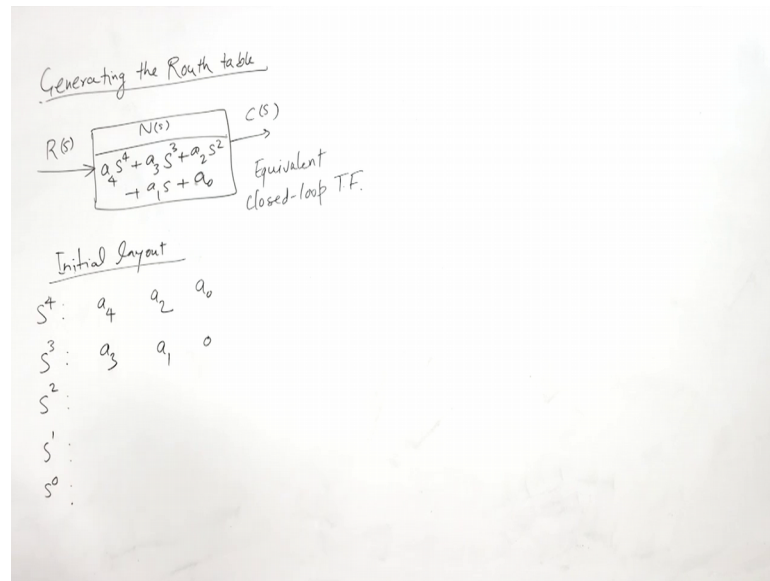 Generating the Routh table
R(s)
N(s)
a₄s⁴ + a₃s³ + a₂s²
+ a₁s + a₀
C(s)
Equivalent
closed-loop T.F.
Initial layout
S⁴: a₄ a₂ a₀
S³: a₃ a₁ 0
S²:
S¹:
S⁰: